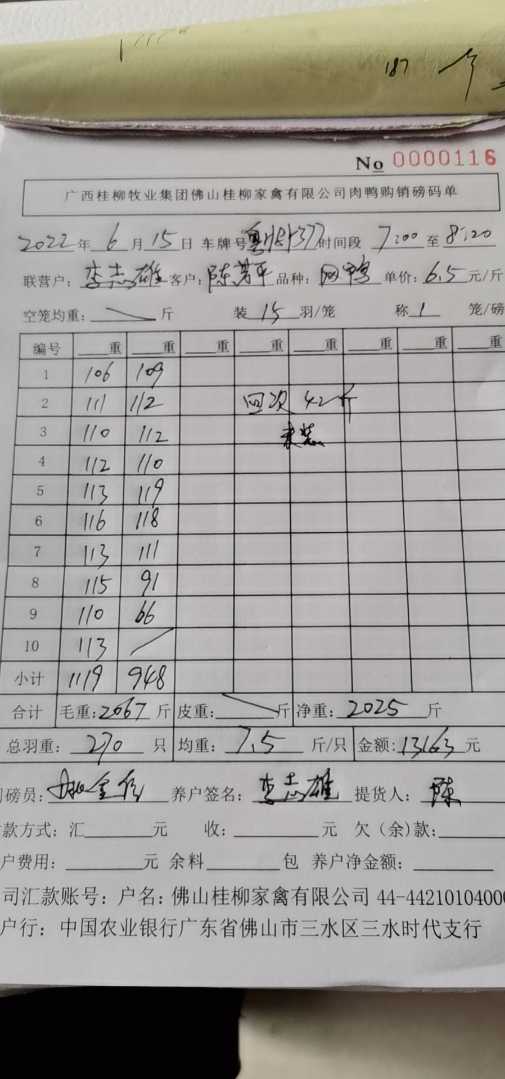 187
No 0000116
广西桂柳牧业集团佛山桂柳家禽有限公司肉鸭购销磅码单
2022 年 6 月 15 日 车牌号 377 时间段 7:00 至 8:20
联营户: 李志雄 客户: 陈 平 品种: 鸭 单价: 6.5 元/斤
空笼均重: 斤 装 15 羽/笼 称 1 笼/磅
编号 重 重 重 重 重 重 重 重
1 106 109
2 111 112 回次 42斤
3 110 112 未装
4 112 110
5 113 119
6 116 118
7 113 111
8 115 91
9 110 66
10 113
小计 1119 948
合计 毛重: 2067 斤 皮重: 斤 净重: 2025 斤
总羽重: 270 只 均重: 7.5 斤/只 金额: 13163 元
磅员: 养户签名: 李志雄 提货人: 陈
款方式: 汇 元 收: 元 欠(余)款:
户费用: 元 余料 包 养户净金额:
司汇款账号: 户名: 佛山桂柳家禽有限公司 44-44210104000
户行: 中国农业银行广东省佛山市三水区三水时代支行